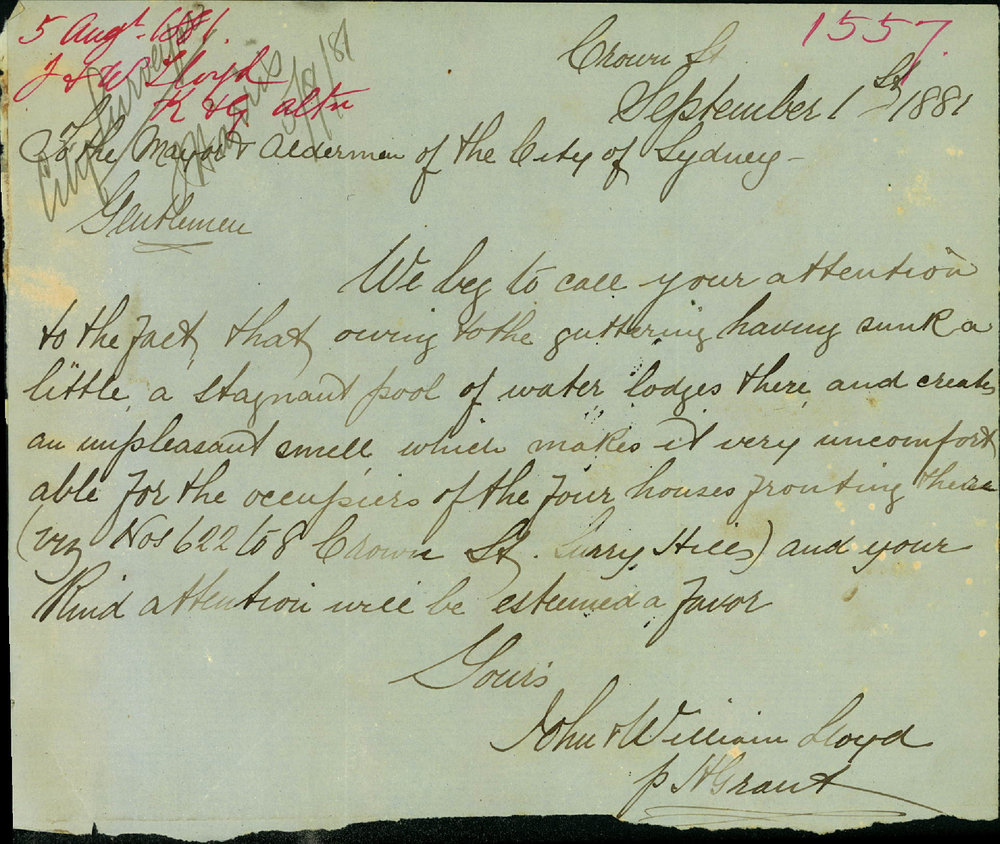 5 Augt. 1881.
J & W Lloyd
K & G altn
City Surveyor
1/9/81
1557.
Crown St
September 1st 1881
To the Mayor & Aldermen of the City of Sydney –
Gentlemen
We beg to call your attention
to the fact, that owing to the guttering having sunk a
little, a stagnant pool of water lodges there and creates
an unpleasant smell, which makes it very uncomfort
able for the occupiers of the four houses fronting there
(viz Nos 622 to 8 Crown St. Surry Hills) and your
kind attention will be esteemed a favor
Yours
John & William Lloyd
p H Grant